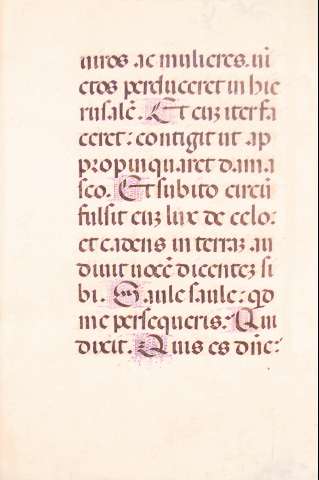 uiros ac mulieres. uī
ctos perduceret in hie
rusalē. Et cuȝ iter fa
ceret: contigit ut ap
propinquaret dama
sco. Et subito circū
fulsit euȝ lux de celo:
et cadens in terraȝ au
diuit uocē dicenteȝ si
bi. Saule saule: qd
me persequeris: Qui
dixit. Quis es dn̄e: